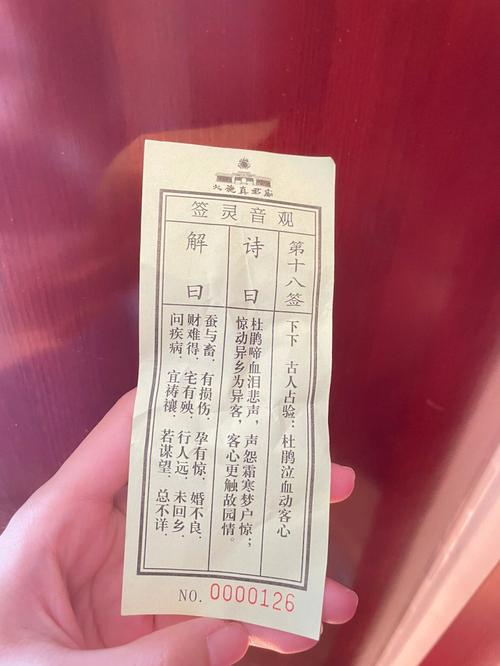 真君庙
观音灵签
第十八签
下下 古人占验：杜鹃泣血动客心
诗曰
杜鹃啼血泪悲声，声怨霜寒梦户惊；
惊动异乡为异客，客心更触故园情。
解曰
蚕与畜，有损伤．孕有惊，婚不良．
财难得，宅有殃．行人远，未回乡．
问疾病，宜祷禳．若谋望，总不详．
NO. 0000126